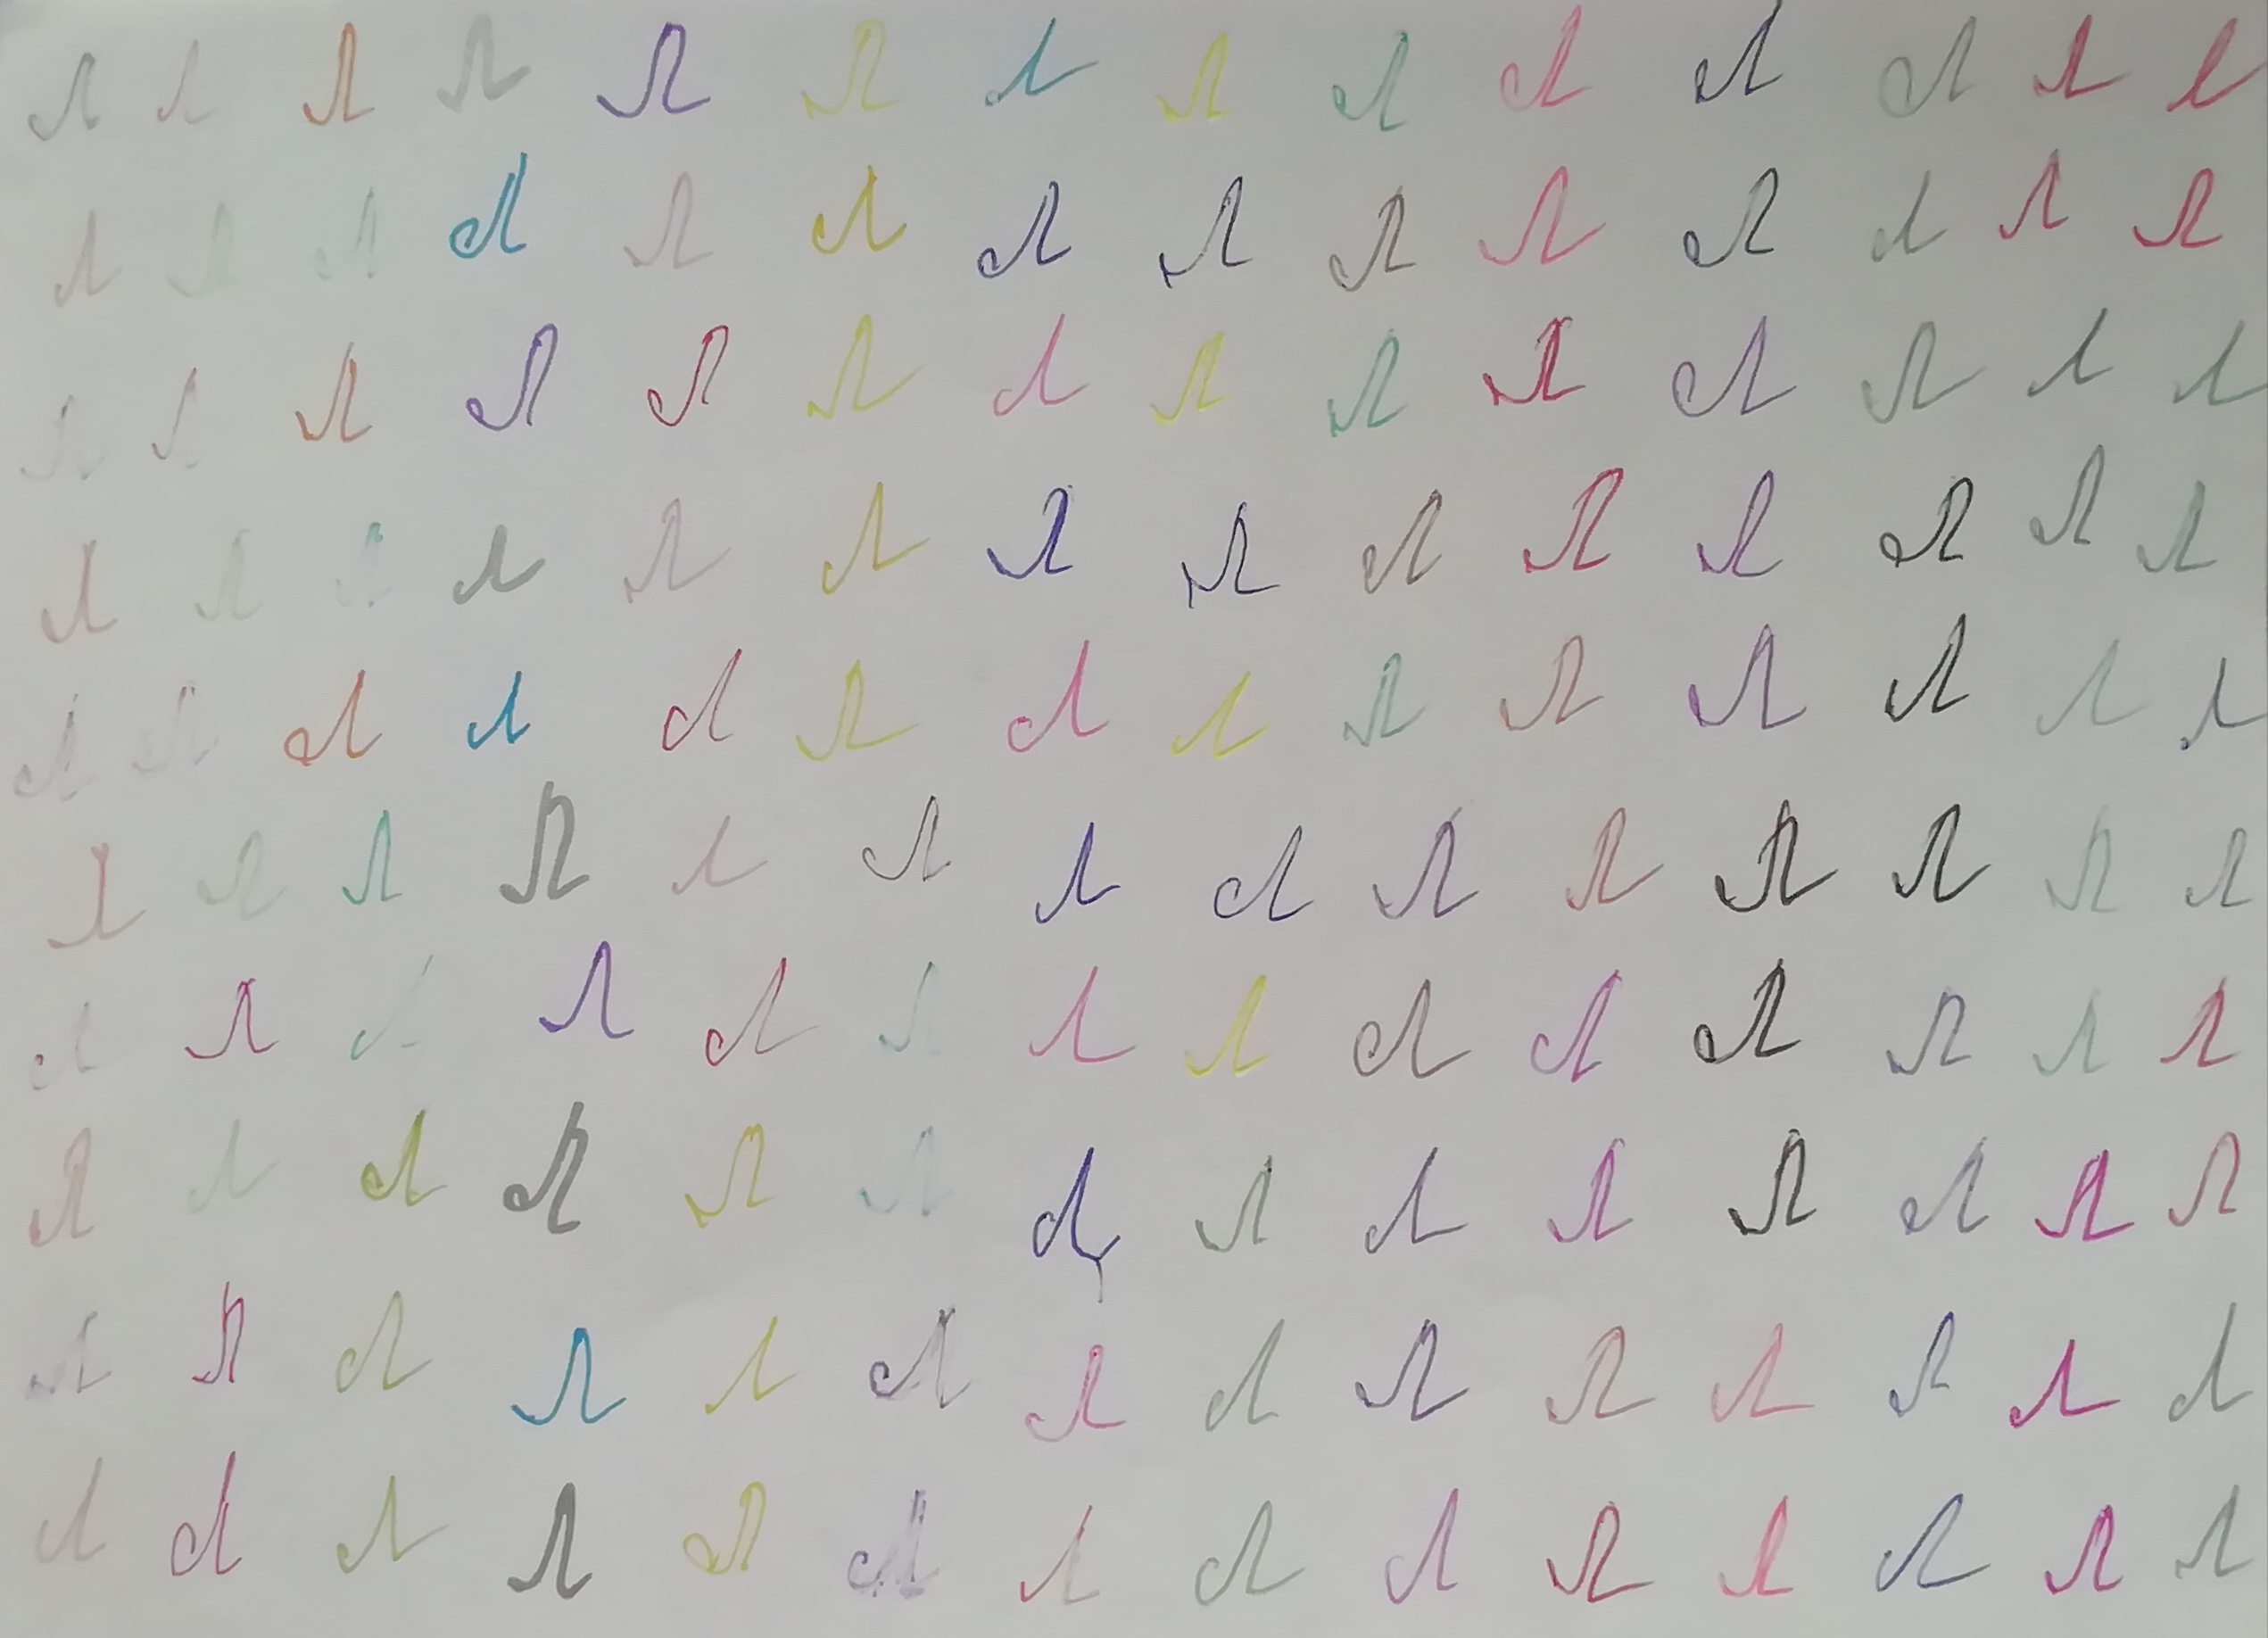 Л Л Л Л Л Л Л Л Л Л Л Л Л Л
Л Л Л Л Л Л Л Л Л Л Л Л Л Л
Л Л Л Л Л Л Л Л Л Л Л Л Л Л
Л Л Л Л Л Л Л Л Л Л Л Л Л Л
Л Л Л Л Л Л Л Л Л Л Л Л Л Л
Л Л Л Л Л Л Л Л Л Л Л Л Л Л
Л Л Л Л Л Л Л Л Л Л Л Л Л Л
Л Л Л Л Л Л Л Л Л Л Л Л Л Л
Л Л Л Л Л Л Л Л Л Л Л Л Л Л
Л Л Л Л Л Л Л Л Л Л Л Л Л Л